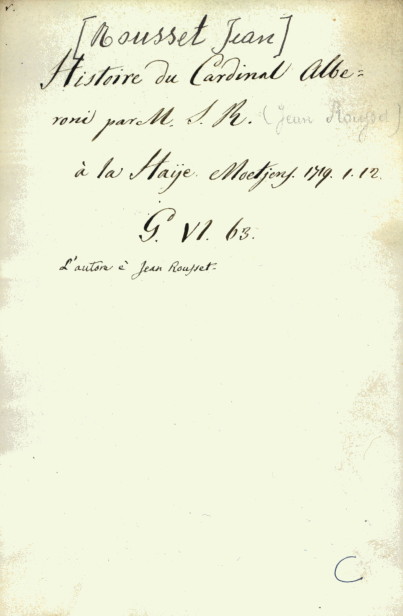 [Rousset Jean]
Histoire du Cardinal Albe=
roni par M. J. R. (Jean Rousset)
à la Haÿe. Moetjens. 1719. 1. 12.
G.º VI. 63.
L'autore è Jean Rousset.
C